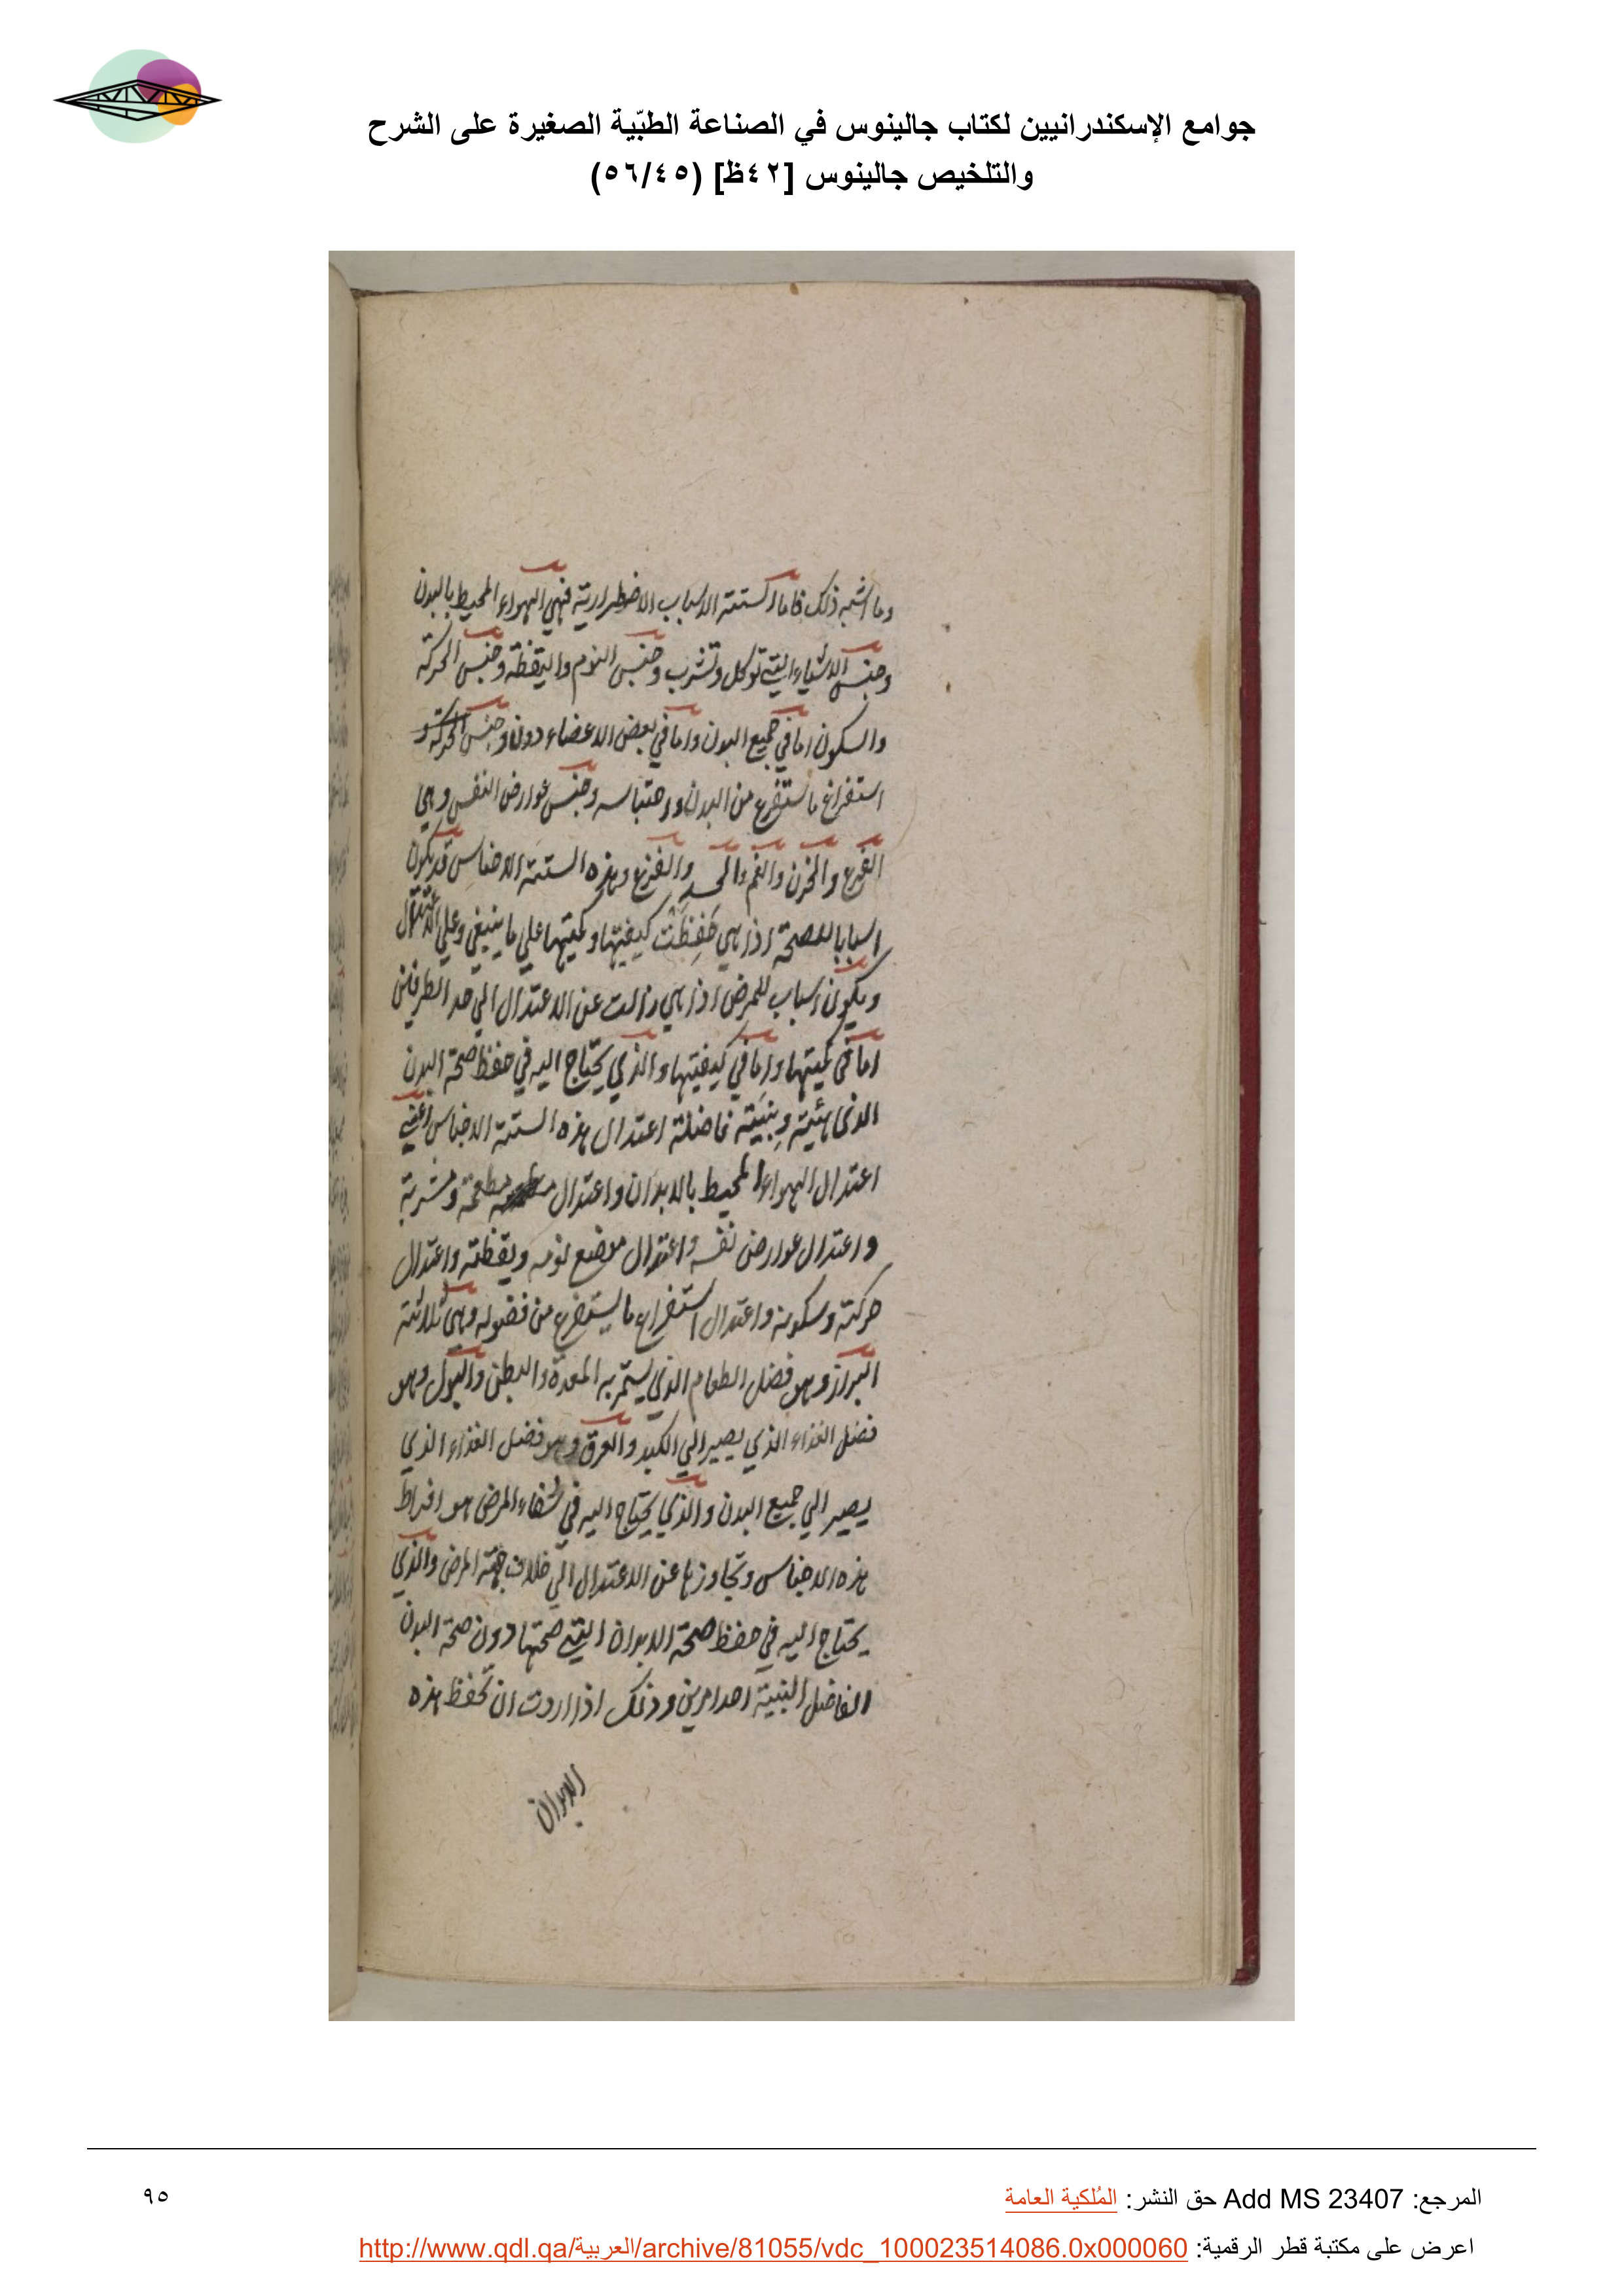 جوامع الإسكندرانيين لكتاب جالينوس في الصناعة الطبّية الصغيرة على الشرح
والتلخيص جالينوس [٤٢ظ] (٥٦/٤٥)
وما اشبه ذلك فاما الستة الاسباب الاضطرارية فهي الهواء المحيط بالبدن
وجنس الاشياء التي توكل وتشرب وجنس النوم واليقظة وجنس الحركة
والسكون اما في جميع البدن واما في بعض الاعضاء دون وجنس الحركة و
استفراغ ما يستفرغ من البدن واحتباسه وجنس عوارض النفس وهي
الفرح والحزن والغم والحسد والفزع وهذه الستة الاجناس قد يكون
اسبابا للصحة اذا هي حُفِظَت كيفيتها وكميتها علي ما ينبغي وعلي الاعتدال
ويكون اسباب للمرض اذا هي زالت عن الاعتدال الي احد الطرفين
اما في كميتها واما في كيفيتها والذي يحتاج اليه في حفظ صحة البدن
الذي هيئته وبنيته فاضلة اعتدال هذه الستة الاجناس اعني
اعتدال الهواء المحيط بالابدان واعتدال مطعمة ومشربة
واعتدال عوارض نفسه واعتدال موضع نومه ويقظته واعتدال
حركته وسكونه واعتدال استفراغ ما يستفرغ من فضوله وهي ثلاثة
البراز وهو فضل الطعام الذي يستمر به المعدة والبطن والبول وهو
فضل الغذاء الذي يصير الي الكبد والعرق وهو فضل الغذاء الذي
يصير الي جميع البدن والذي يحتاج اليه في شفاء المرض هو افراط
هذه الاجناس وتجاوزها عن الاعتدال الي خلاف جهة المرض والذي
يحتاج اليه في حفظ صحة الابدان التي صحتها دون صحة البدن
الفاضل البنية احد امرين وذلك اذا اردت ان تحفظ هذه
الابدان
المرجع: Add MS 23407 حق النشر: المُلكية العامة
٩٥
اعرض على مكتبة قطر الرقمية: http://www.qdl.qa/العربية/archive/81055/vdc_100023514086.0x000060